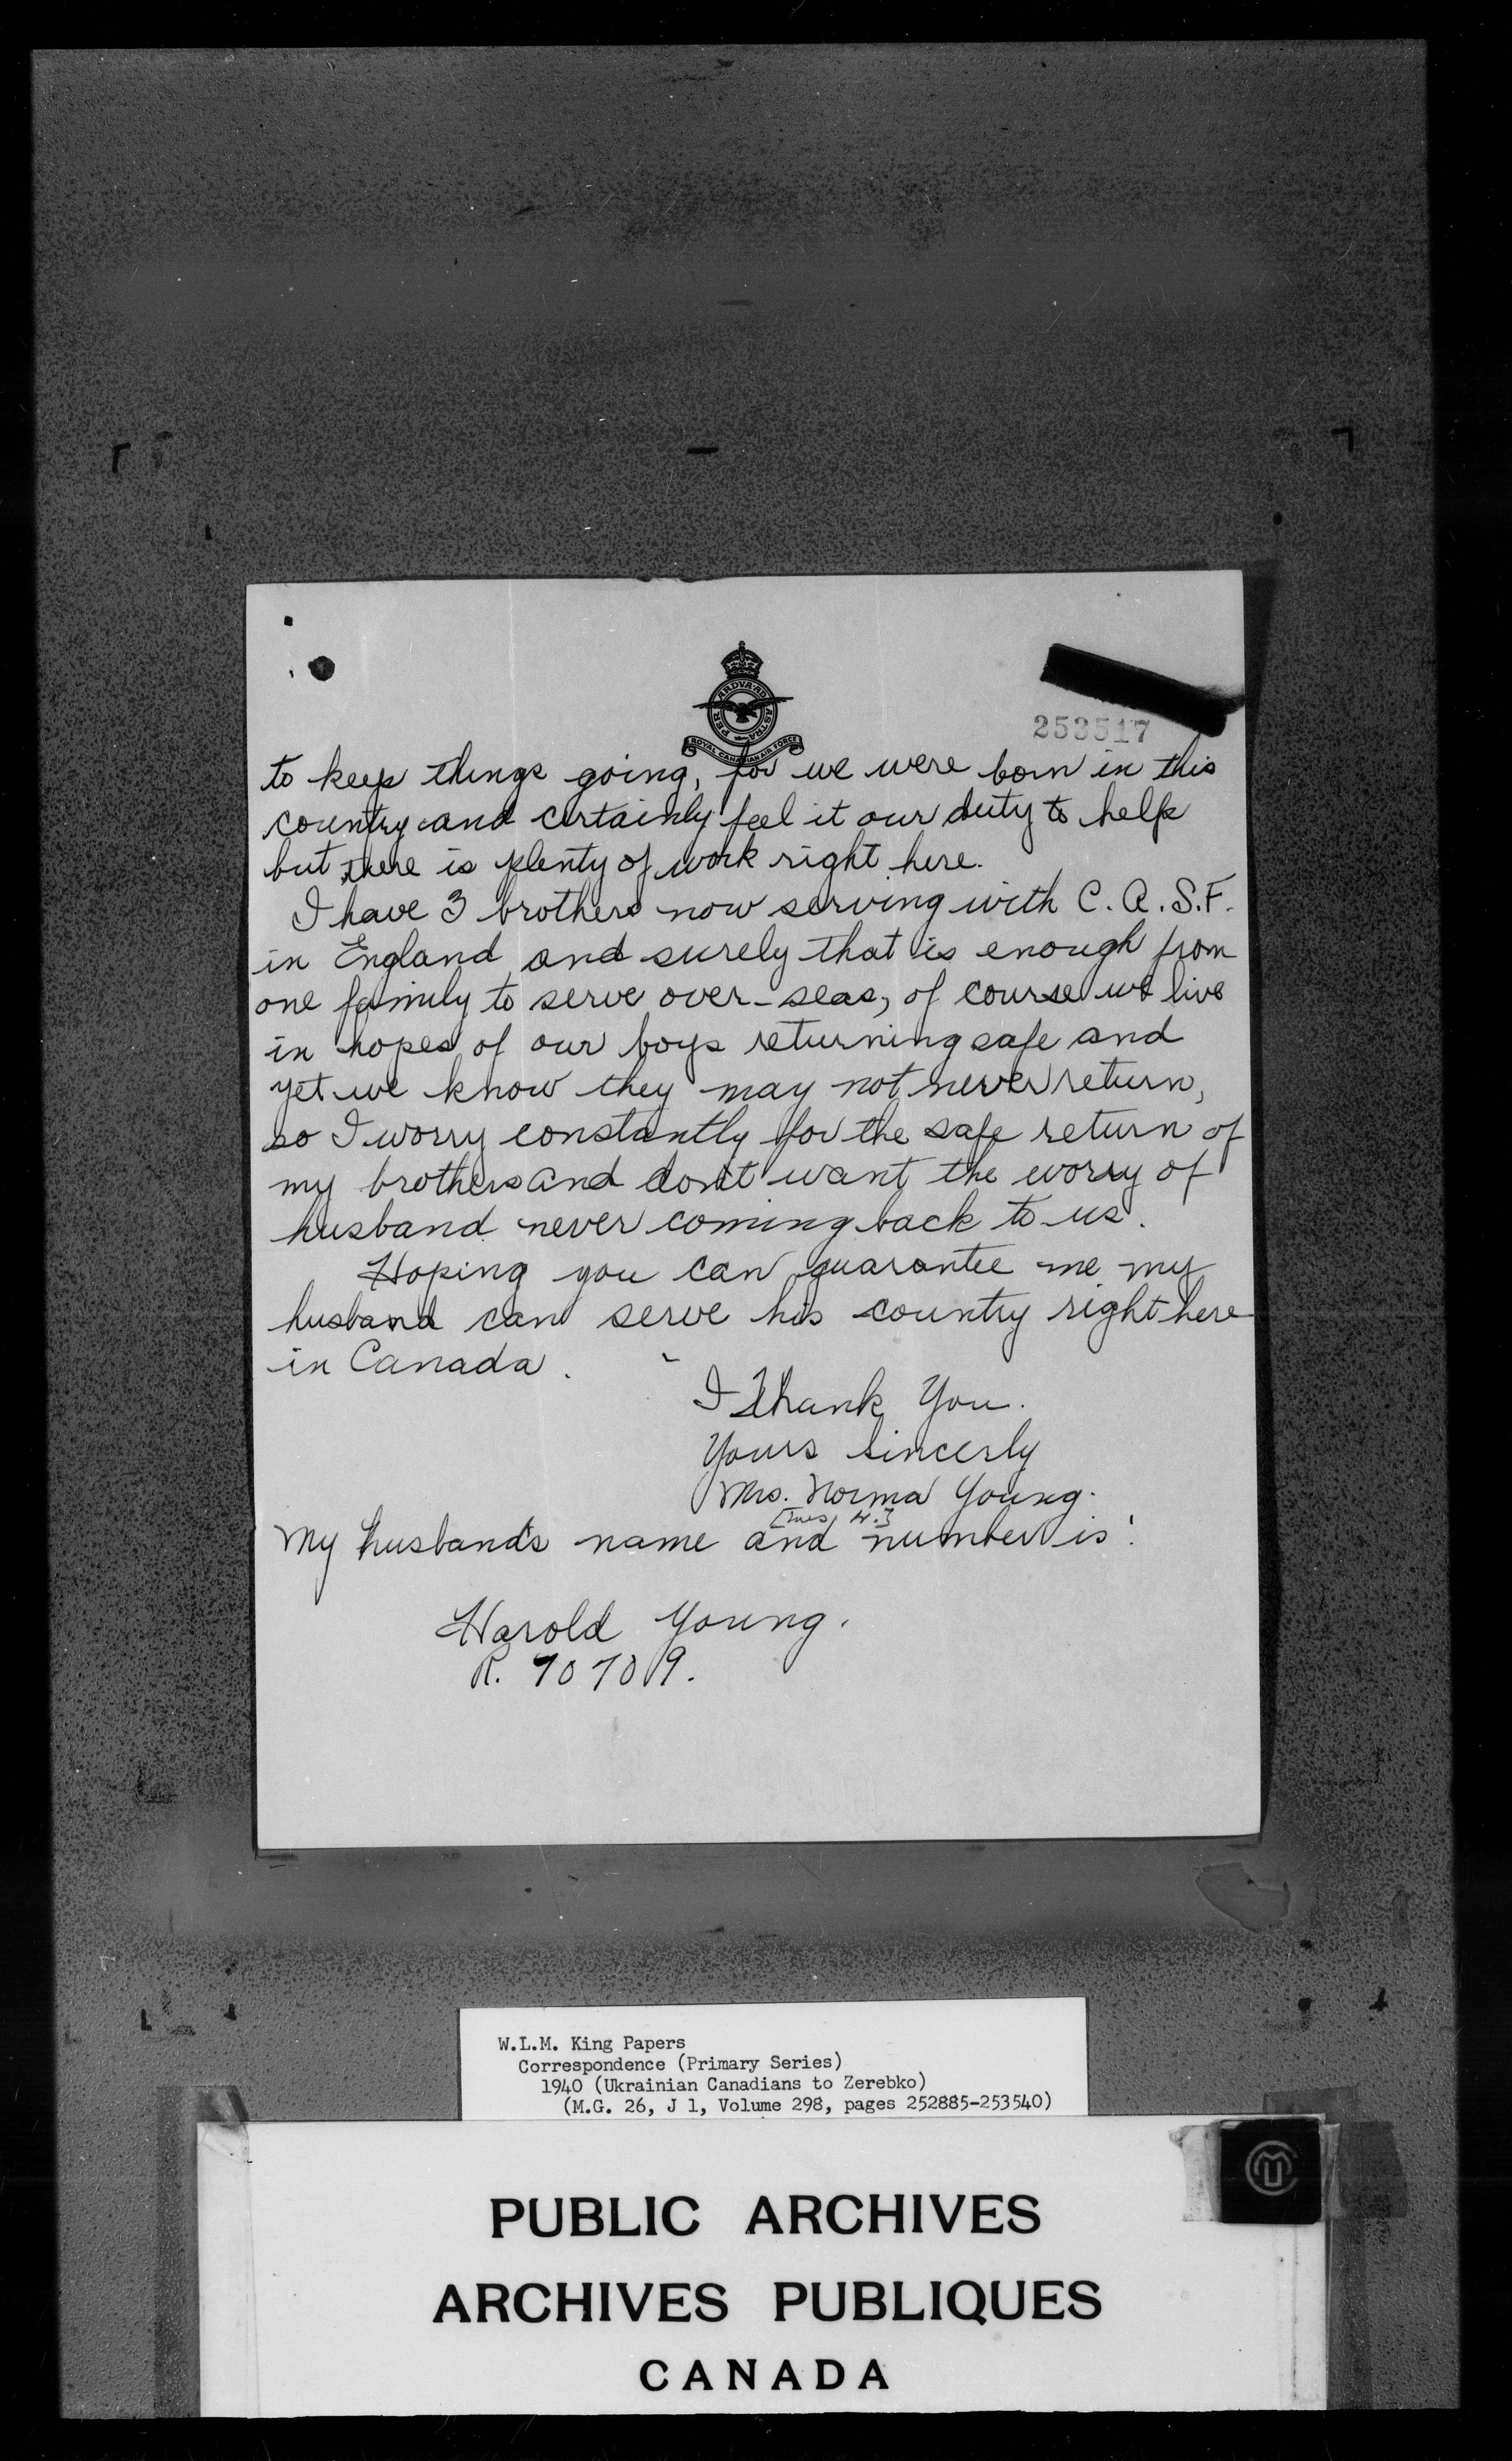 PER ARDVA AD ASTRA
ROYAL CANADIAN AIR FORCE
253517
to keep things going, for we were born in this
country and certainly feel it our duty to help
but there is plenty of work right here.
I have 3 brothers now serving with C.A.S.F.
in England and surely that is enough from
one family to serve over-seas, of course we live
in hopes of our boys returning safe and
yet we know they may not never return,
so I worry constantly for the safe return of
my brothers and don't want the worry of
husband never coming back to us.
Hoping you can guarantee me my
husband can serve his country right here
in Canada.
I Thank You.
Yours sincerly
Mrs. Norma Young.
[Mrs. H.]
My husband's name and number is:
Harold Young.
R. 70709.
W.L.M. King Papers
Correspondence (Primary Series)
1940 (Ukrainian Canadians to Zerebko)
(M.G. 26, J 1, Volume 298, pages 252885-253540)
PUBLIC ARCHIVES
ARCHIVES PUBLIQUES
CANADA